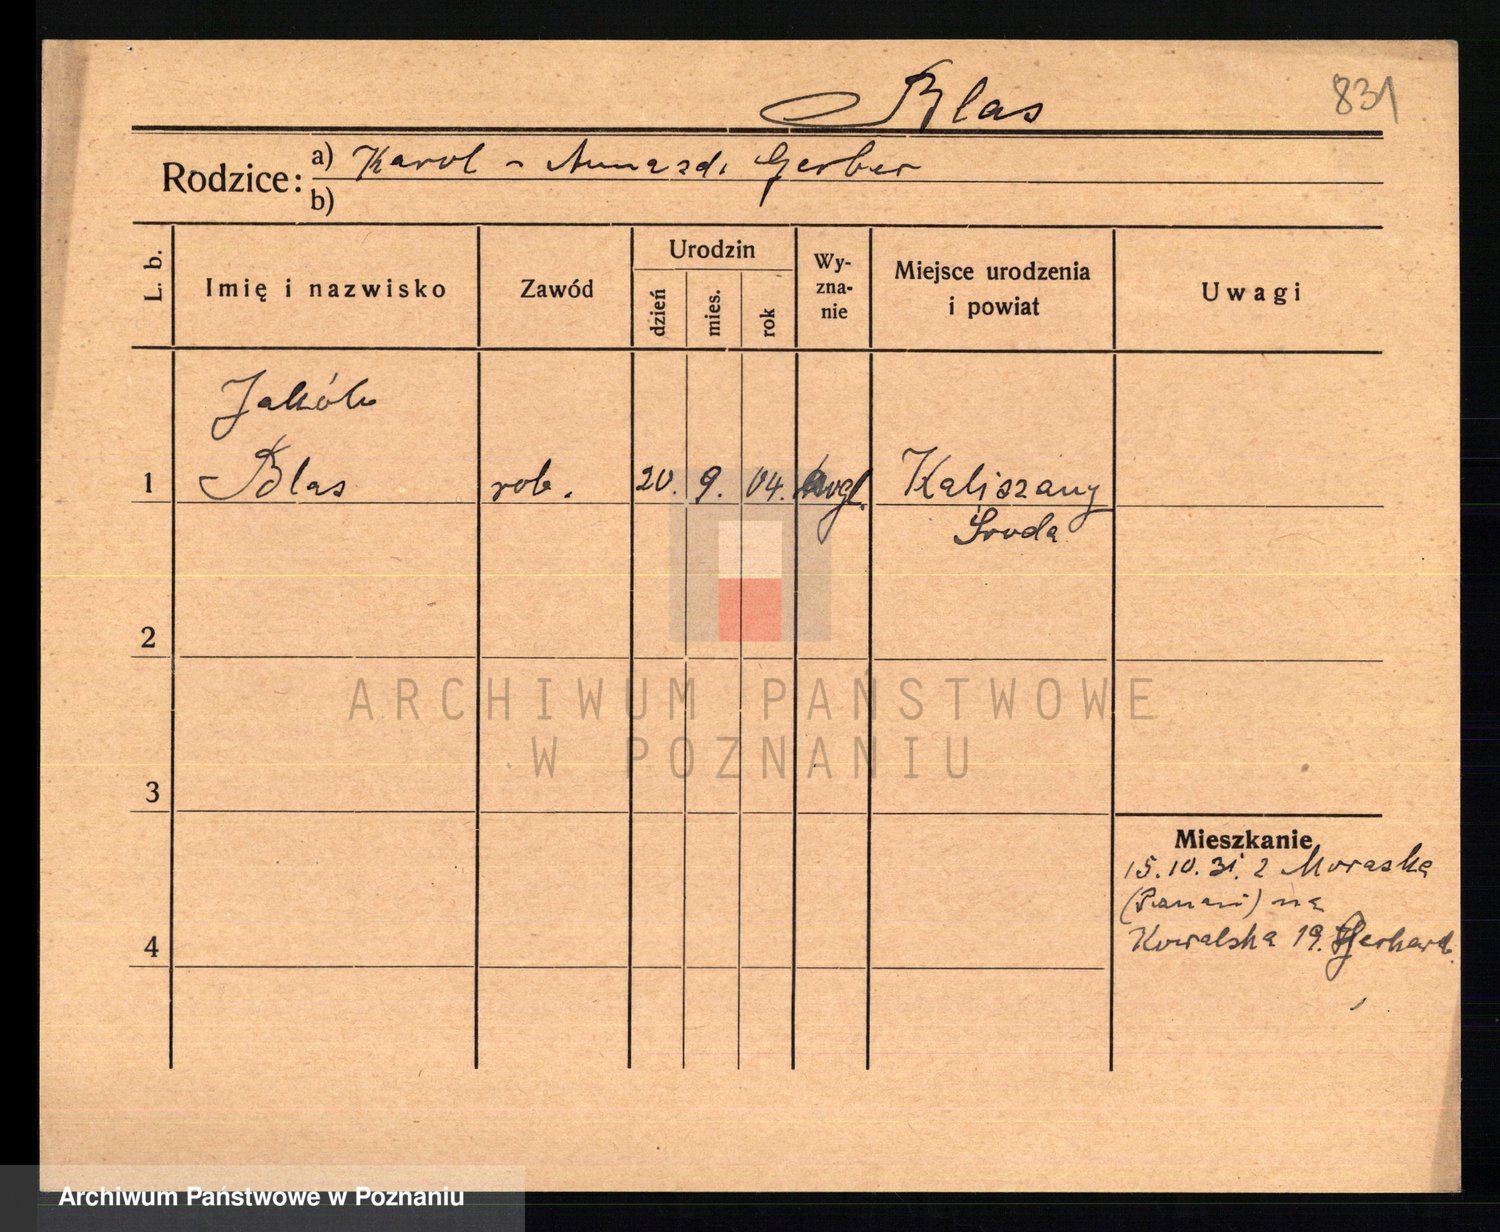 Blas
831
Rodzice: a) Karol - Anna zd. Gerber
b)
L. b.
Imię i nazwisko
Zawód
Urodzin
dzień
mies.
rok
Wy-
zna-
nie
Miejsce urodzenia
i powiat
Uwagi
Jakób
1 Blas rob. 20. 9. 04. ewgl. Kaliszany
Sroda
2
3
4
Mieszkanie
15.10.31. z Moraska
(Poznań) na
Kowalska 19. Gerhard.
ARCHIWUM PAŃSTWOWE
W POZNANIU
Archiwum Państwowe w Poznaniu